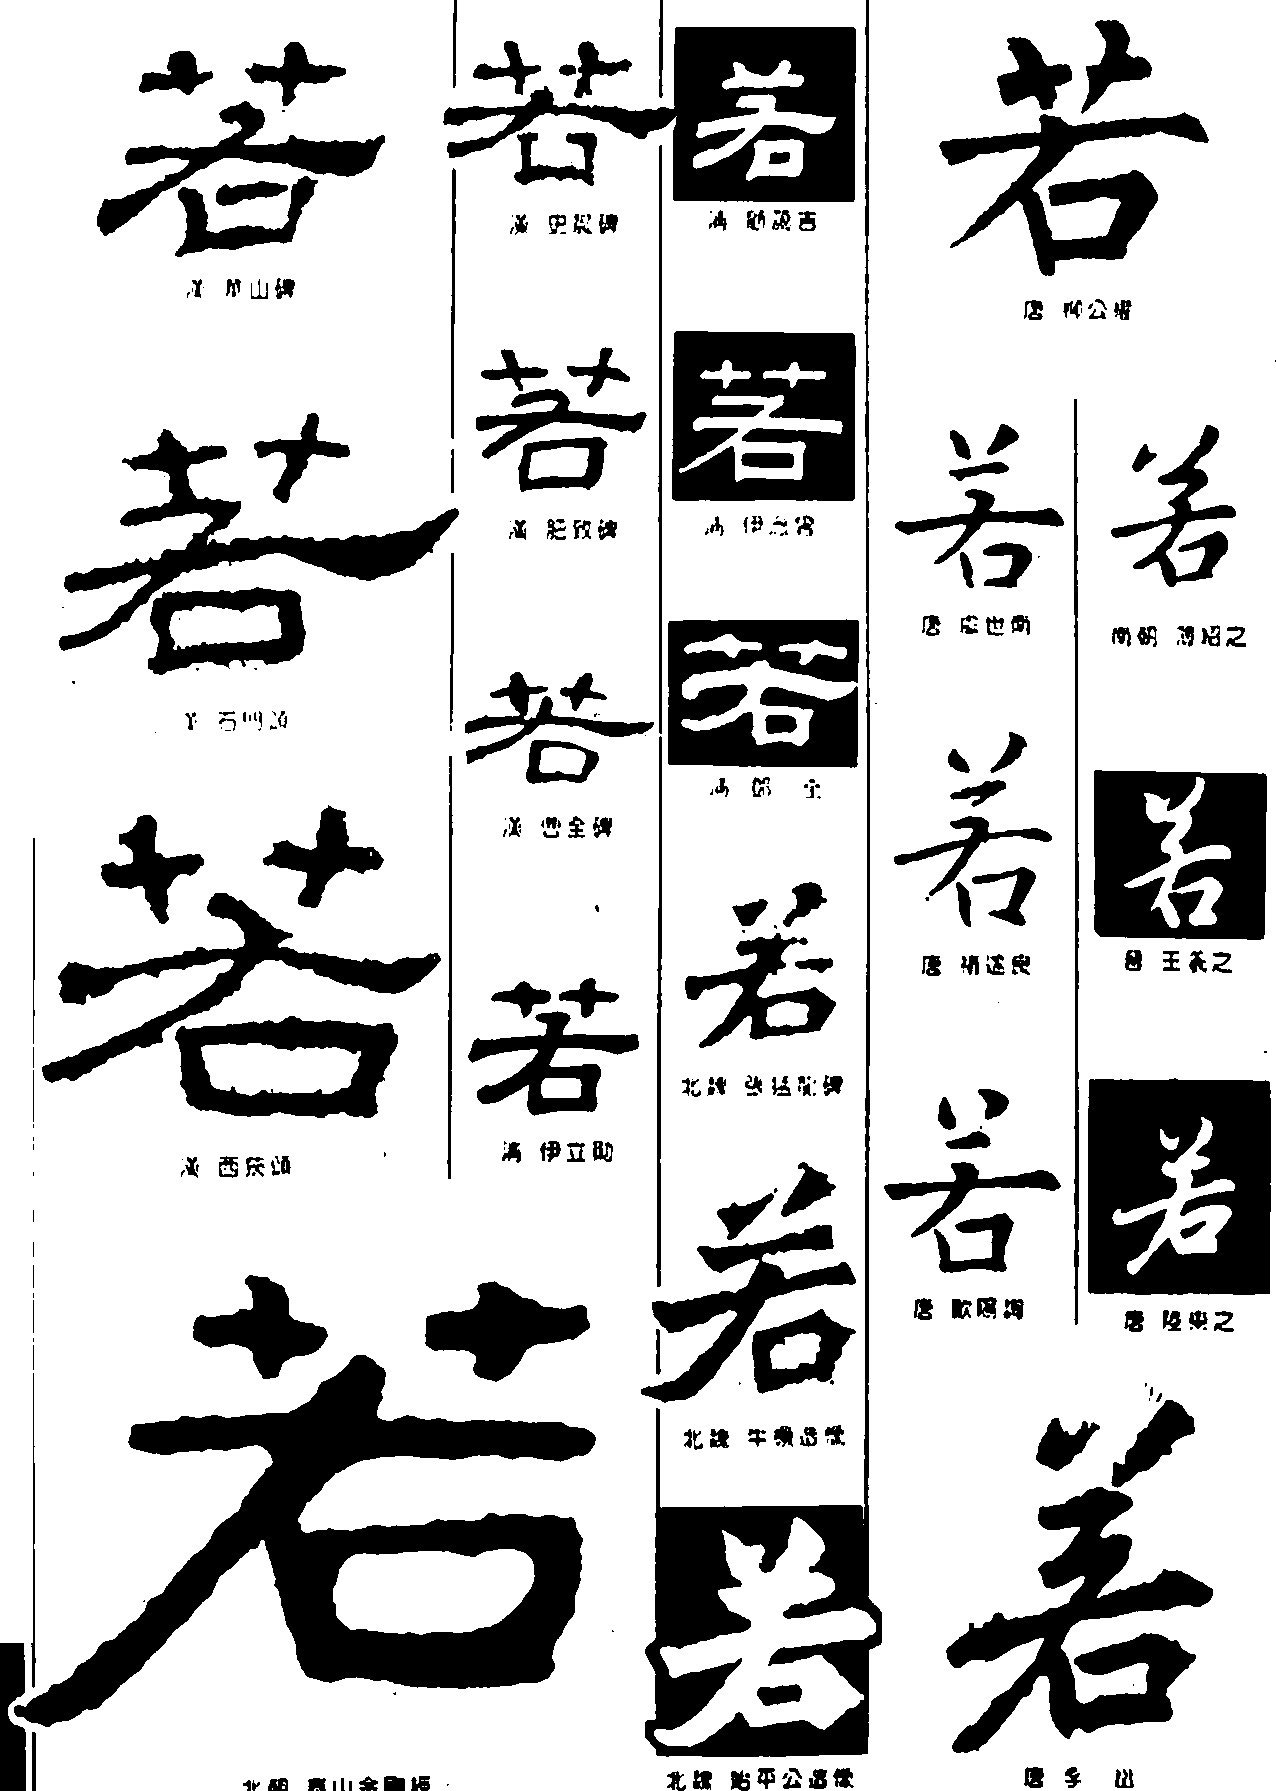 若
漢 華山碑
若
漢 石門頌
若
漢 西狹頌
若
北朝 泰山金剛經
若
漢 史晨碑
若
漢 肥致碑
若
漢 曹全碑
若
清 伊立勳
若
若
清 伊念曾
若
若
北魏 張猛龍碑
若
北魏 牛橛造像
若
北魏 始平公造像
若
唐 柳公權
若
唐 虞世南
若
唐 褚遂良
若
唐 歐陽詢
若
南朝 薄紹之
若
晉 王羲之
若
唐 陸柬之
若
唐 李